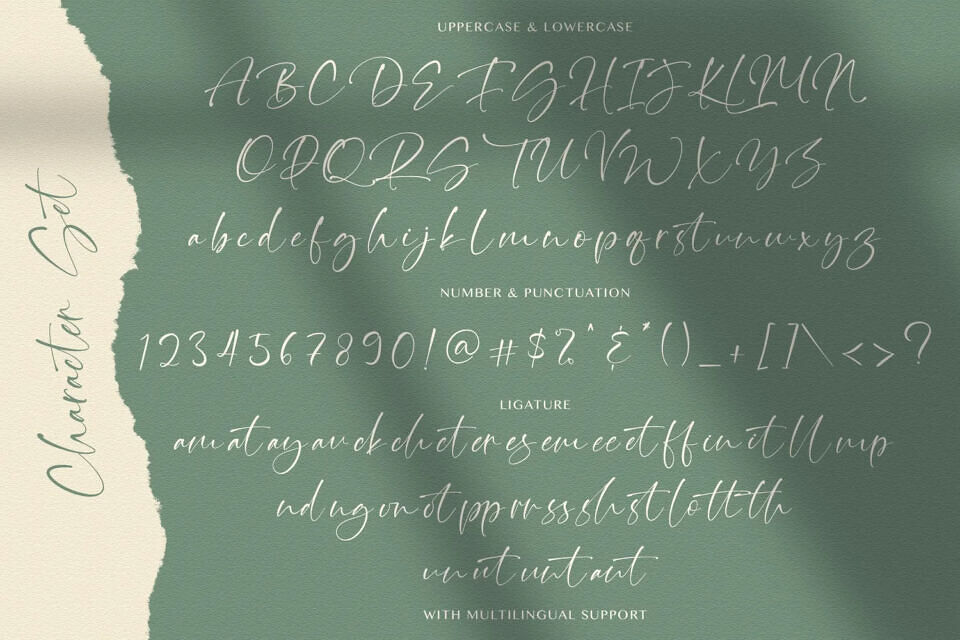 Character Set
UPPERCASE & LOWERCASE
A B C D E F G H I J K L M N
O P Q R S T U V W X Y Z
a b c d e f g h i j k l m n o p q r s t u v w x y z
NUMBER & PUNCTUATION
1 2 3 4 5 6 7 8 9 0 ! @ # $ % ^ & * ( ) _ + [ ] \ < > ?
LIGATURE
am at ay av ck ch ct er es em ee et ff in it ll mp
nd ng on ot pp rr ss sh st lo tt th
un ut unt ant
WITH MULTILINGUAL SUPPORT